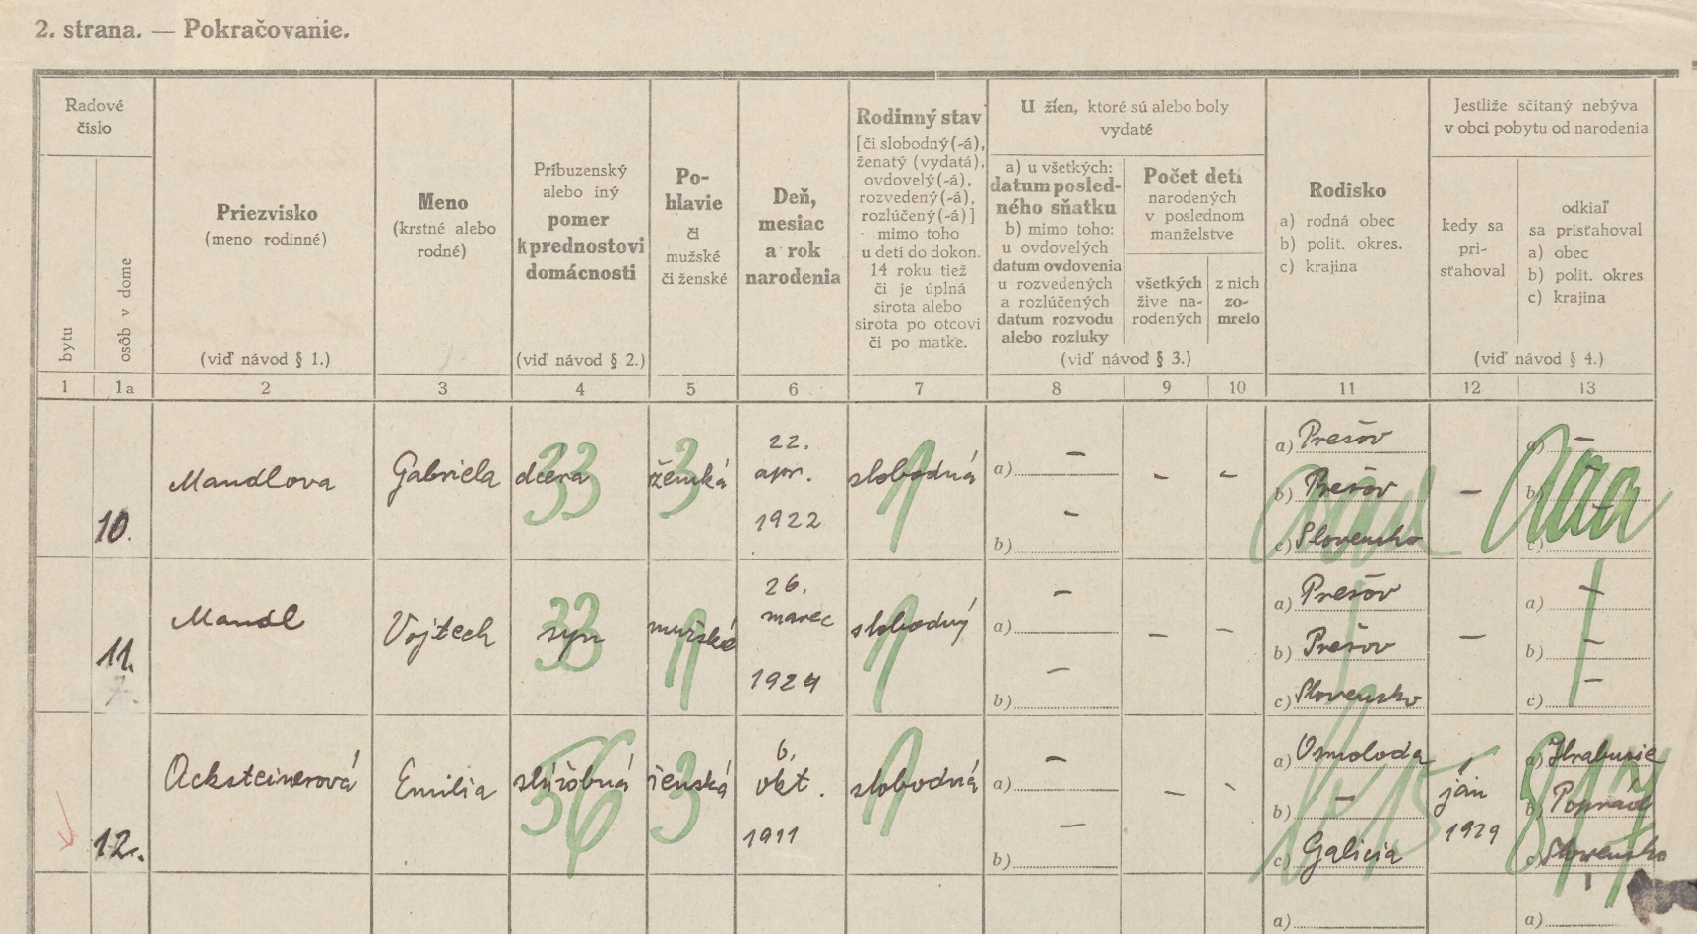 2. strana. — Pokračovanie.
Radové
číslo
bytu
osôb v dome
Priezvisko
(meno rodinné)
(viď návod § 1.)
Meno
(krstné alebo
rodné)
Príbuzenský
alebo iný
pomer
k prednostovi
domácnosti
(viď návod § 2.)
Po-
hlavie
či
mužské
či ženské
Deň,
mesiac
a rok
narodenia
Rodinný stav
[či slobodný(-á),
ženatý (vydatá),
ovdovelý(-á),
rozvedený(-á),
rozlúčený(-á)]
mimo toho
u detí do dokon.
14 roku tiež
či je úplná
sirota alebo
sirota po otcovi
či po matke.
U žien, ktoré sú alebo boly
vydaté
a) u všetkých:
datum posled-
ného sňatku
b) mimo toho:
u ovdovelých
datum ovdovenia
u rozvedených
a rozlúčených
datum rozvodu
alebo rozluky
Počet detí
narodených
v poslednom
manželstve
všetkých
žive na-
rodených
z nich
zo-
mrelo
(viď návod § 3.)
Rodisko
a) rodná obec
b) polit. okres.
c) krajina
Jestliže sčítaný nebýva
v obci pobytu od narodenia
kedy sa
pri-
sťahoval
odkiaľ
sa prisťahoval
a) obec
b) polit. okres
c) krajina
(viď návod § 4.)
1 1a 2 3 4 5 6 7 8 9 10 11 12 13
10.
Mandlova
Gabriela
dcera
33
ženská
3
22.
apr.
1922
slobodná
1
a) —
b) —
—
—
a) Prešov
b) Prešov
c) Slovensko
—
a) —
b) —
c) —
11.
Mandl
Vojtech
syn
33
mužské
1
26.
marec
1924
slobodný
1
a) —
b) —
—
—
a) Prešov
b) Prešov
c) Slovensko
—
a) —
b) —
c) —
12.
Acksteinerová
Emilia
slúžobná
56
ženská
3
6.
okt.
1911
slobodná
1
a) —
b) —
—
-
a) Osmoloda
b) —
c) Galicia
1
ján
1929
a) Hrabušie
b) Poprad
c) Slovensko
a)
a)